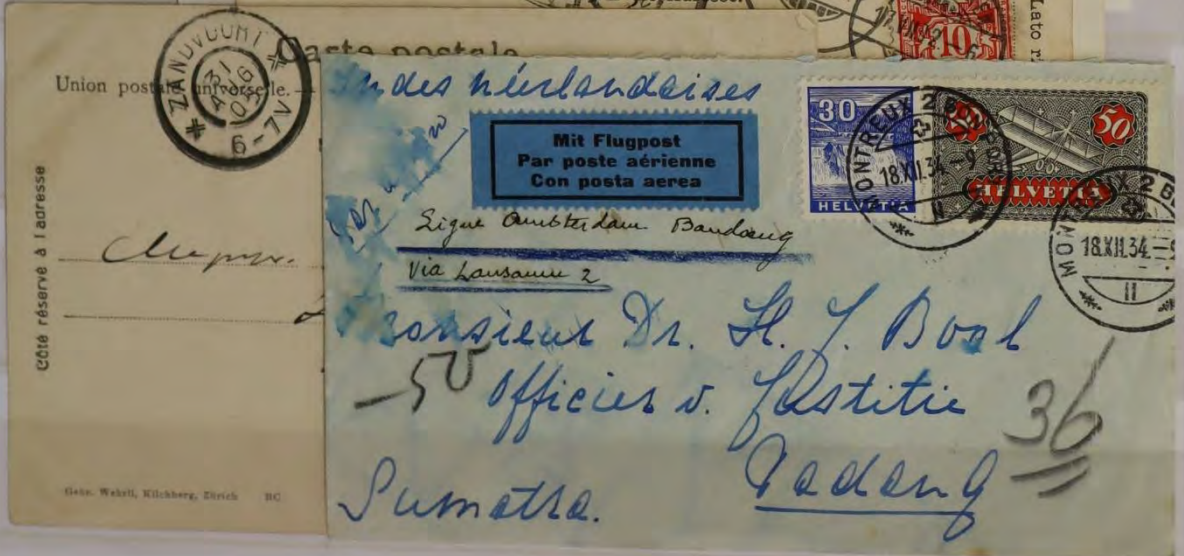 Lato
17.VIII.42
10
Carte postale
Union postale universelle.
ZANDVOORT
31 AUG 05
6-7V
Côté réservé à l'adresse
Gebr. Wehrli, Kilchberg, Zürich BC
Indes néerlandaises
Mit Flugpost
Par poste aérienne
Con posta aerea
30
HELVETIA
50
HELVETIA
MONTREUX 2 BON PORT
18.XII.34.-9
II
MONTREUX 2 B
18.XII.34
II
Ligne Amsterdam Bandoeng
Via Lausanne 2
Monsieur Dr. H. J. Bool
Officier v. Justitie
Padang
Sumatra.
-50
36